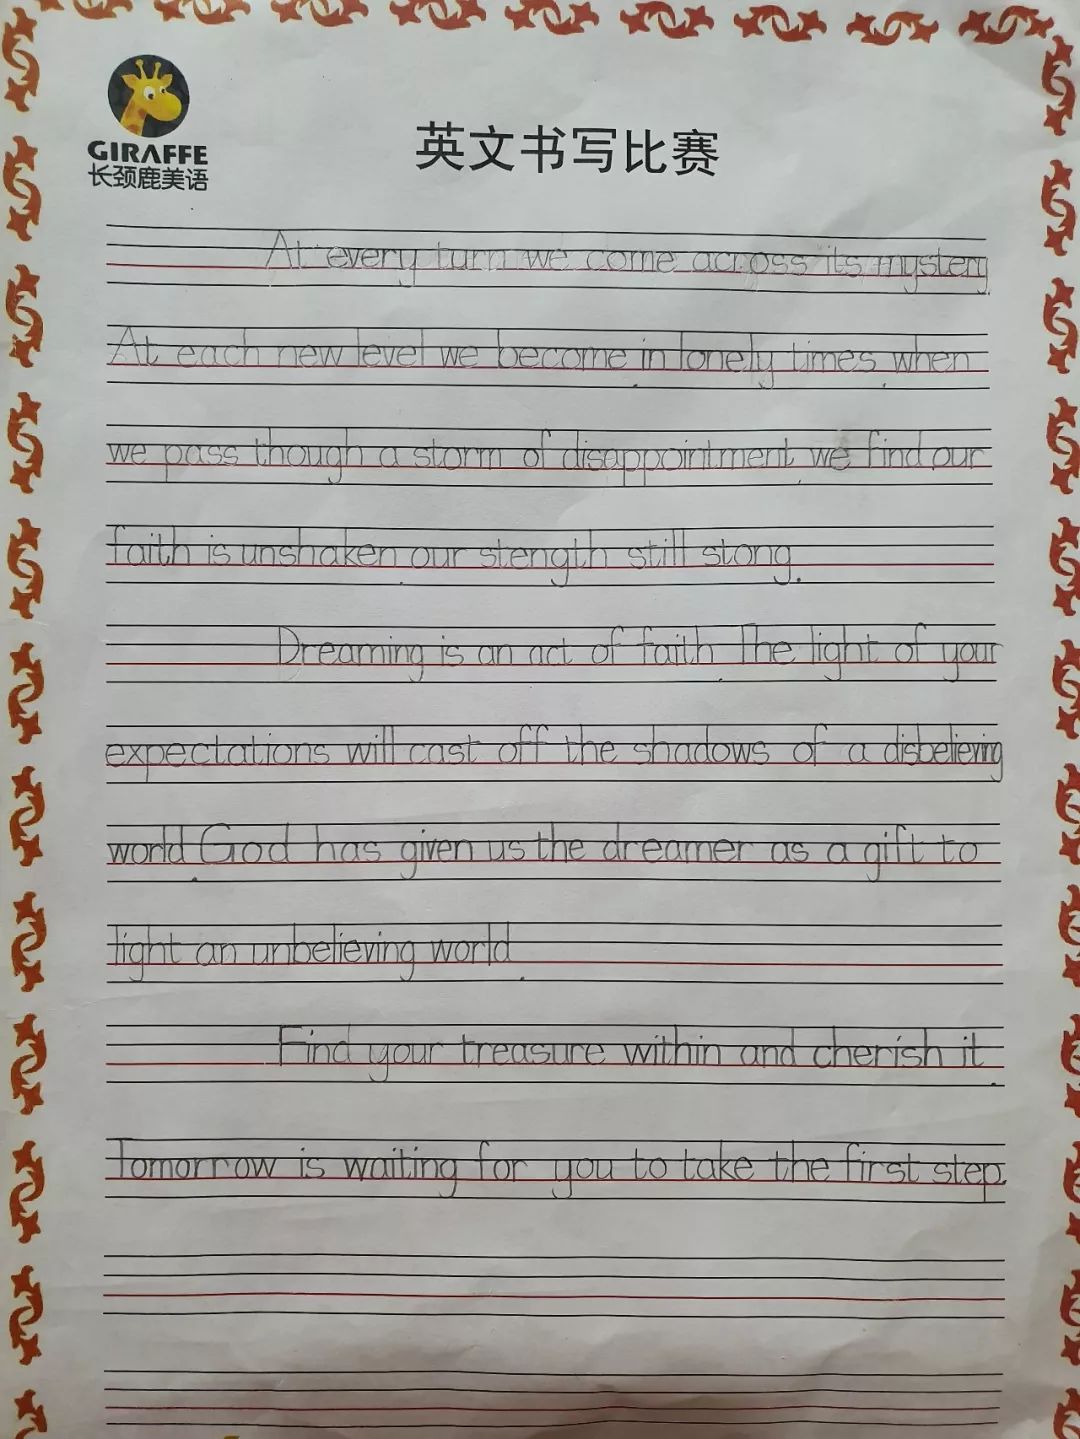 GIRAFFE
长颈鹿美语
英文书写比赛
At every turn we come across its mystery
At each new level we become in lonely times when
we pass though a storm of disappointment we find our
faith is unshaken our stength still stong.
Dreaming is an act of faith. The light of your
expectations will cast off the shadows of a disbelieving
world. God has given us the dreamer as a gift to
light an unbelieving world.
Find your treasure within and cherish it.
Tomorrow is waiting for you to take the first step.